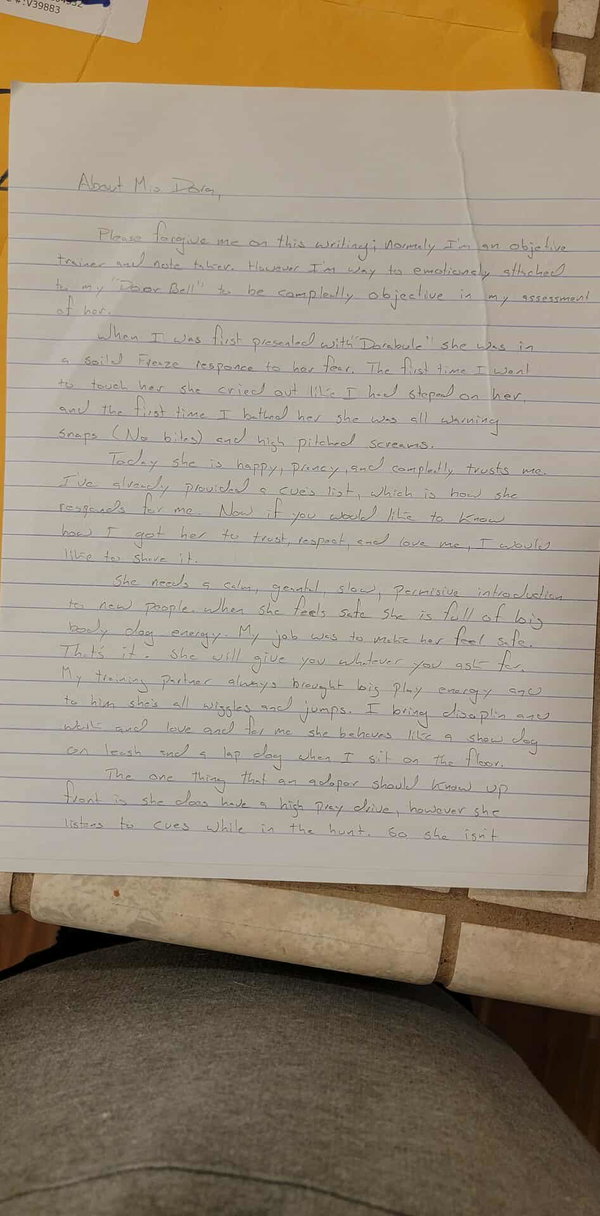 #:V39883
About Mis Dora,
Please forgive me on this writing; normaly I'm an objetive
trainer and note taker. However I'm way to emotionely attached
to my "Door Bell" to be completly objective in my assessment
of her.
When I was first presented with "Dorabule" she was in
a soild Freeze responce to her fear. The first time I went
to touch her she cried out like I had steped on her,
and the first time I bathed her she was all warning
snaps (No bites) and high pitched screams.
Today she is happy, prancy, and completly trusts me.
I've already provided a cue's list, which is how she
responds for me. Now if you would like to know
how I got her to trust, respect, and love me, I would
like to share it.
She needs a calm, gentel, slow, permisive introduction
to new people. When she feels safe she is full of big
body dog energy. My job was to make her feel safe.
That's it. She will give you whatever you ask for.
My training partner always brought big play energy and
to him she's all wiggles and jumps. I bring disaplin and
work and love and for me she behaves like a show dog
on leash and a lap dog when I sit on the floor.
The one thing that an adopor should know up
front is she does have a high pray drive, however she
listens to cues while in the hunt. So she isn't